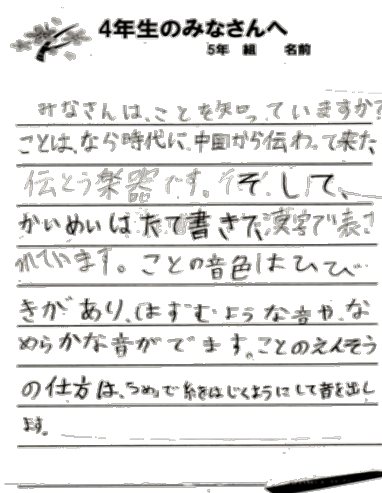 4年生のみなさんへ
5年 組 名前
みなさんは、ことを知っていますか?
ことは、なら時代に、中国から伝わって来た、
伝とう楽器です。そして、
かいめいはたて書きで、漢字で表さ
れています。ことの音色はひび
きがあり、はずむような音や、な
めらかな音がでます。ことのえんそう
の仕方は、「つめ」で糸をはじくようにして音を出し
ます。